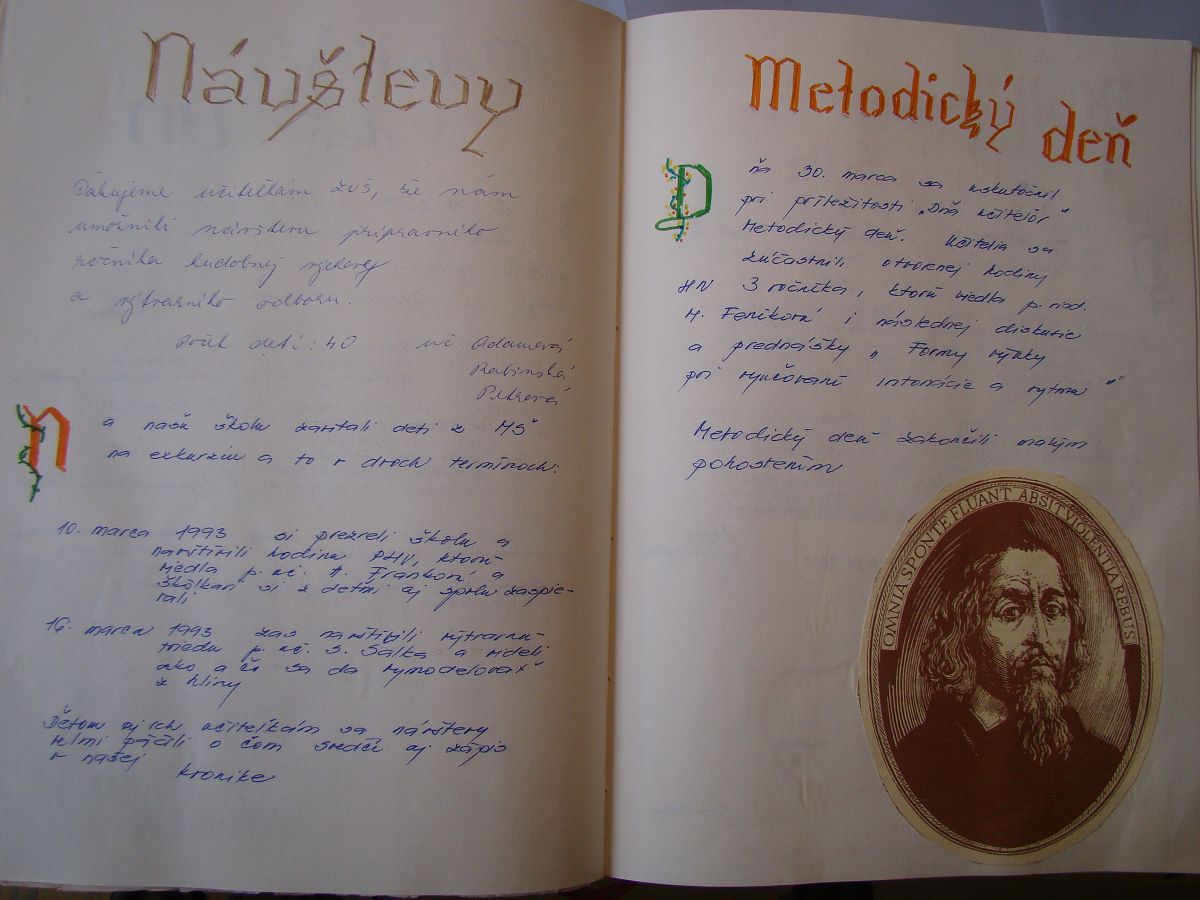 Návštevy
Ďakujeme učiteľkám ZUŠ, že nám
umožnili návštevu prípravného
ročníka hudobnej výchovy
a výtvarného odboru.
Počet detí: 40 uč. Adamová
Rabinská
Petrová
Na našu školu zavítali deti z MŠ
na exkurziu a to v dvoch termínoch:
10. marca 1993 si prezreli školu a
navštívili hodinu PHV, ktorú
viedla p. uč. A. Franková a
škôlkari si s deťmi aj spolu zaspie-
vali
16. marca 1993 zas navštívili výtvarnú
triedu p. uč. S. Salka a videli
ako a čo sa dá vymodelovať
z hliny
Deťom aj ich učiteľkám sa návštevy
veľmi páčili o čom svedčí aj zápis
v našej kronike
Metodický deň
Dňa 30. marca sa uskutočnil
pri príležitosti „Dňa učiteľov"
Metodický deň. Učitelia sa
zúčastnili otvorenej hodiny
HN 3 ročníka, ktorú viedla p. riad.
M. Feniková i následnej diskusie
a prednášky „Formy výuky
pri vyučovaní intonácie a rytmu"
Metodický deň zakončili malým
pohostením
OMNIA SPONTE FLUANT ABSIT VIOLENTIA REBUS